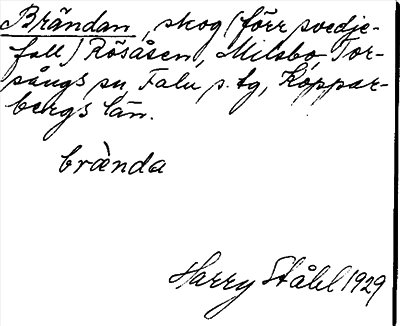 Brändan, skog (förr svedje-
fall) Rösåsen, Milsbo, Tor-
sångs sn, Falu s. tg, Koppar-
bergs län.
brὰnda
Harry Ståhl 1929